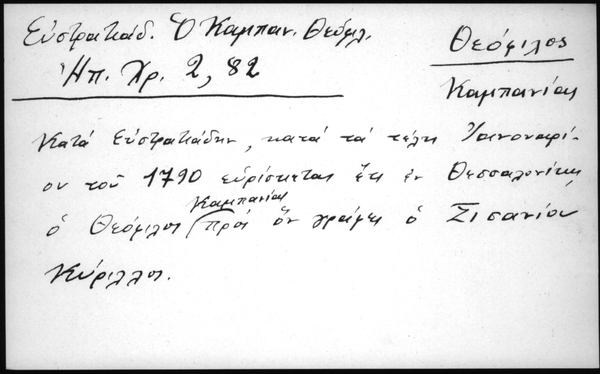 Εὐστρατιάδ. Ὁ Καμπαν. Θεόφιλ.
Ἠπ. Χρ. 2, 82
Θεόφιλος
Καμπανίας
Κατά Εὐστρατιάδην, κατά τά τέλη Ἰανουαρί-
ου τοῦ 1790 εὑρίσκεται ἔτι ἐν Θεσσαλονίκῃ
ὁ Θεόφιλος Καμπανίας πρός ὅν γράφει ὁ Σισανίου
Κύριλλος.